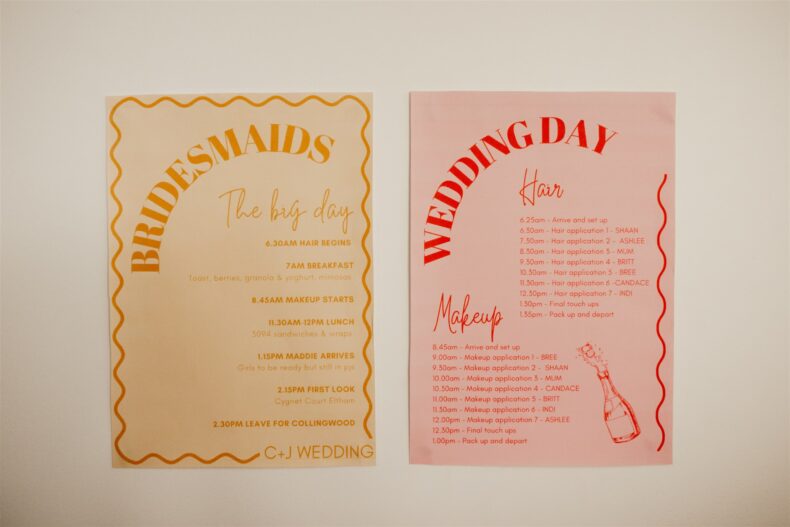 BRIDESMAIDS
The big day
6.30AM HAIR BEGINS
7AM BREAKFAST
Toast, berries, granola & yoghurt, mimosas
8.45AM MAKEUP STARTS
11.30AM-12PM LUNCH
3094 sandwiches & wraps
1.15PM MADDIE ARRIVES
Girls to be ready but still in pjs
2.15PM FIRST LOOK
Cygnet Court Eltham
2.30PM LEAVE FOR COLLINGWOOD
C+J WEDDING
WEDDING DAY
Hair
6.25am - Arrive and set up
6.30am - Hair application 1 - SHAAN
7.30am - Hair application 2 - ASHLEE
8.30am - Hair application 3 - MUM
9.30am - Hair application 4 - BRITT
10.30am - Hair application 5 - BREE
11.30am - Hair application 6 -CANDACE
12.30pm - Hair application 7 - INDI
1.30pm - Final touch ups
1.35pm - Pack up and depart
Makeup
8.45am - Arrive and set up
9.00am - Makeup application 1 - BREE
9.30am - Makeup application 2 - SHAAN
10.00am - Makeup application 3 - MUM
10.30am - Makeup application 4 - CANDACE
11.00am - Makeup application 5 - BRITT
11.30am - Makeup application 6 - INDI
12.00pm - Makeup application 7 - ASHLEE
12.30pm - Final touch ups
1.00pm - Pack up and depart